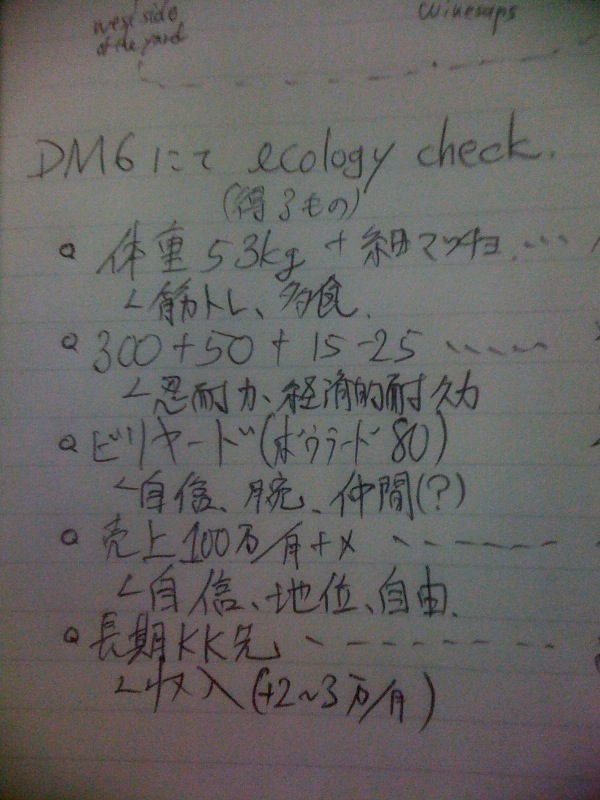 west side
of the yard
winesaps
DM6にて ecology check.
(得るもの)
体重53kg + 細マッチョ....
∠筋トレ、多食.
300+50+15-25 .....
∠忍耐力、経済的耐久力
ビリヤード(ボウラード80)
∠自信、腕、仲間(?)
売上100万/月+α
∠自信、地位、自由.
長期KK先
∠収入(+2~3万/月)